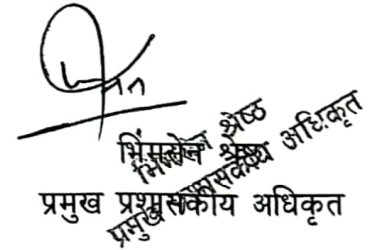 भिमसेन श्रेष्ठ
प्रमुख प्रशासकीय अधिकृत
भिमसेन श्रेष्ठ
प्रमुख प्रशासकीय अधिकृत